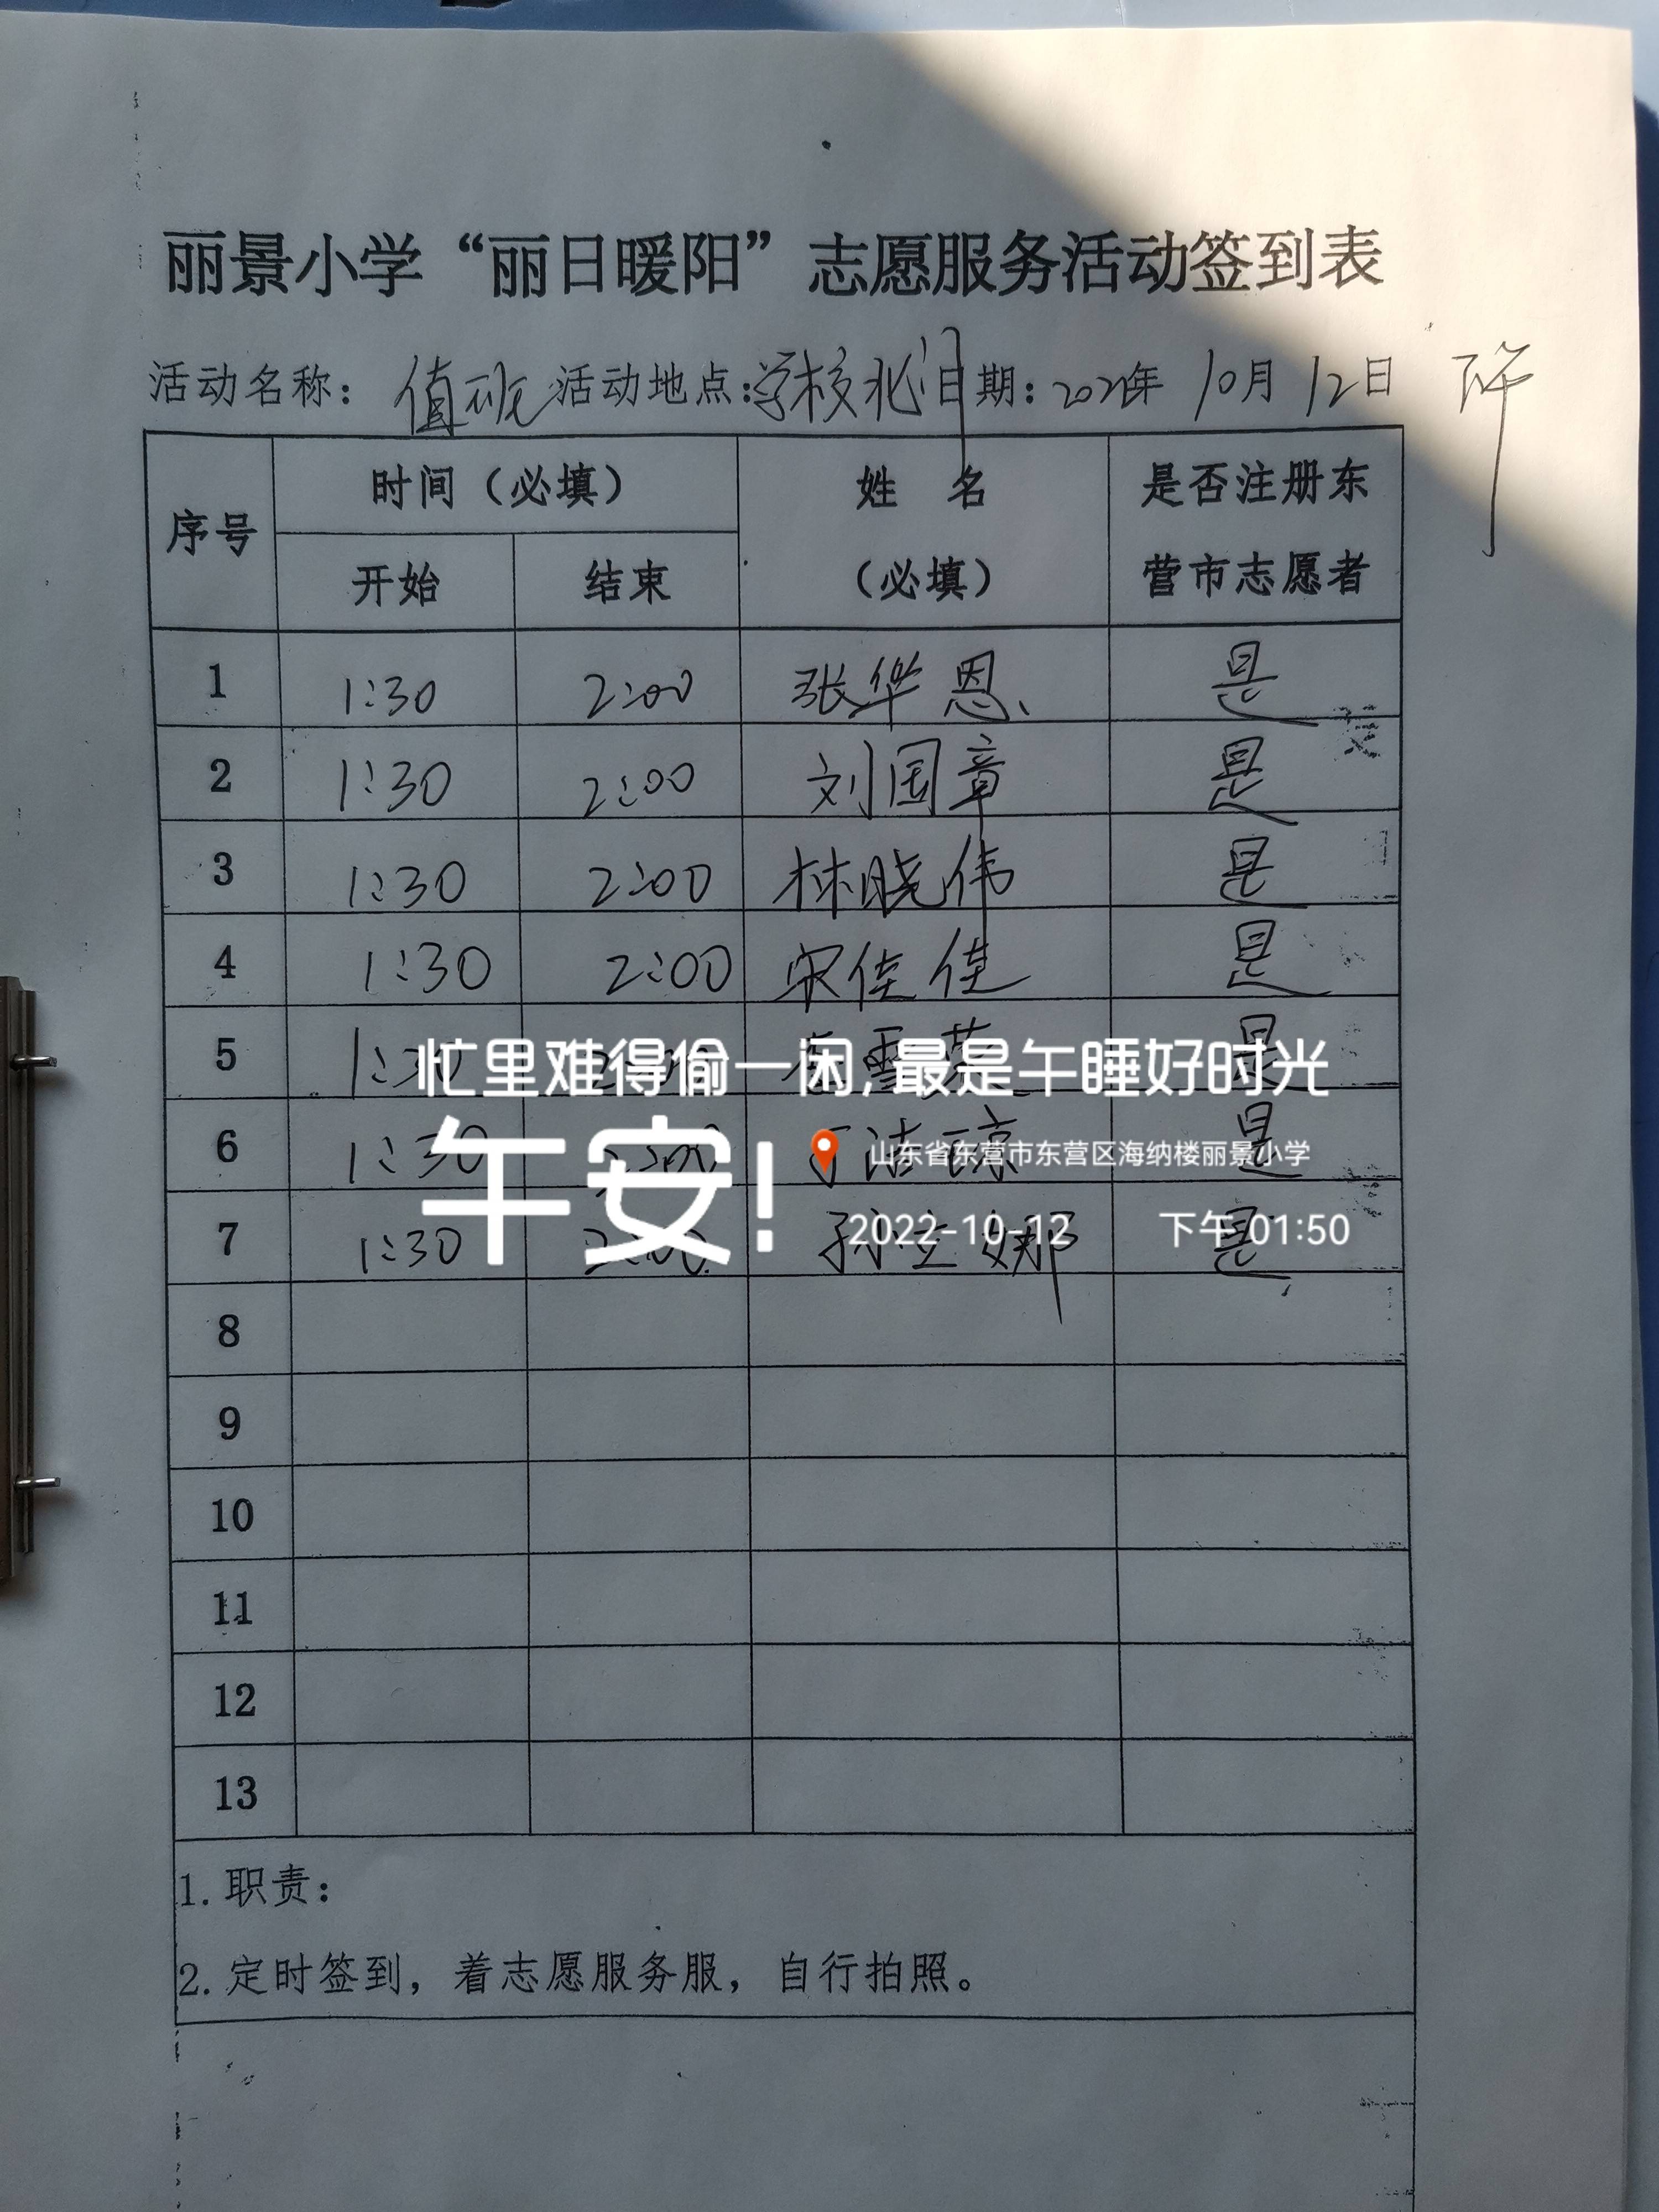 丽景小学“丽日暖阳”志愿服务活动签到表
活动名称：值班 活动地点：学校北门 日期：2022年 10月 12日 下午
序号 时间（必填） 姓 名（必填） 是否注册东营市志愿者
开始 结束
1 1:30 2:00 张华恩 是
2 1:30 2:00 刘国章 是
3 1:30 2:00 林晓伟 是
4 1:30 2:00 宋佳佳 是
5 1:30 是
忙里难得偷一闲,最是午睡好时光
6 1:30 2:00 是
午安!
山东省东营市东营区海纳楼丽景小学
7 1:30 2:00 孙立娜 是
2022-10-12 下午 01:50
8
9
10
11
12
13
1.职责：
2.定时签到，着志愿服务服，自行拍照。